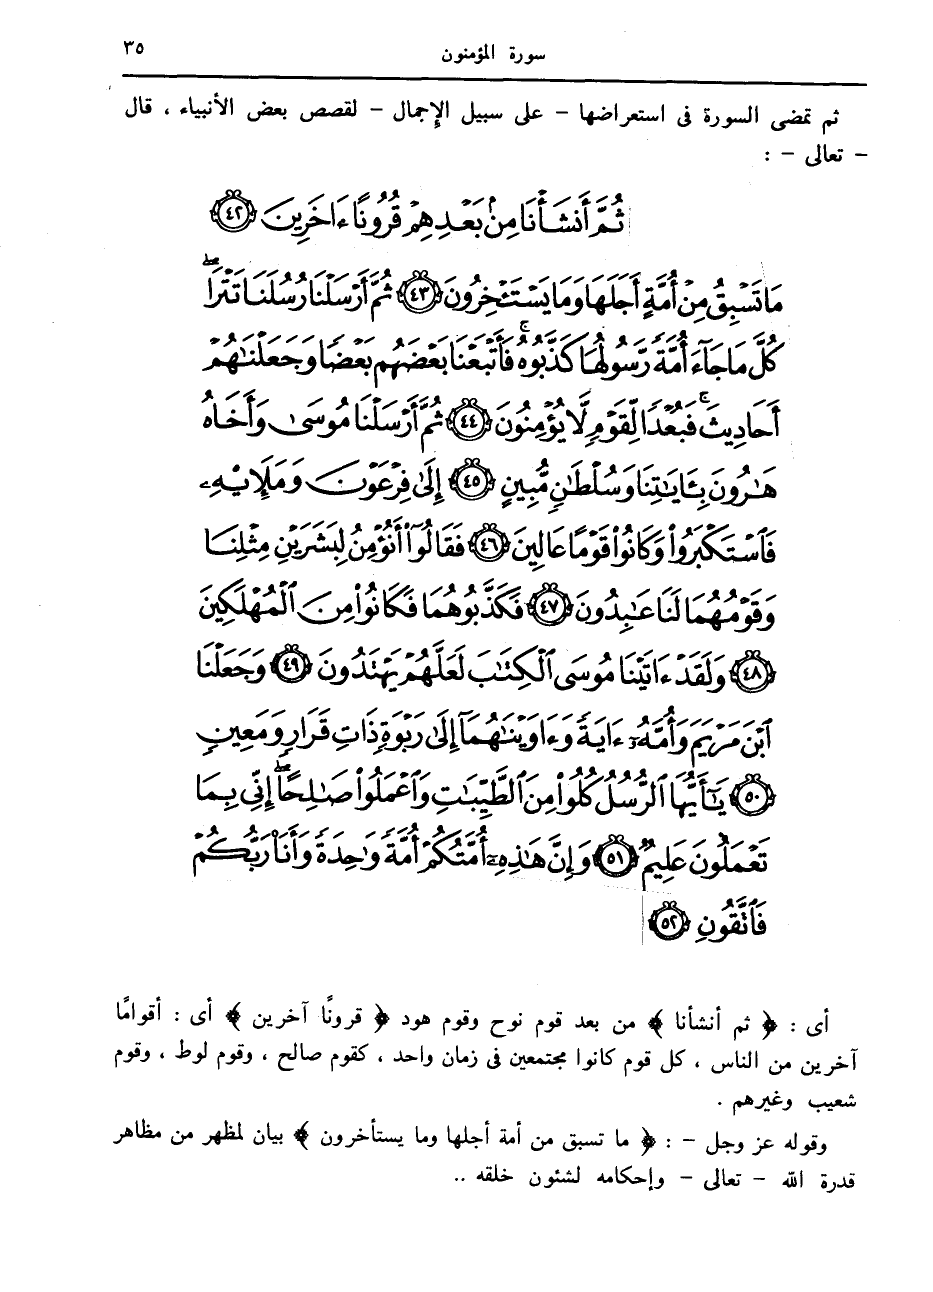 سورة المؤمنون
٣٥
ثم تمضى السورة فى استعراضها – على سبيل الإجمال – لقصص بعض الأنبياء ، قال
– تعالى – :
ثُمَّ أَنشَأْنَا مِنۢ بَعْدِهِمْ قُرُونًا ءَاخَرِينَ ﴿٤٢﴾
مَا تَسْبِقُ مِنْ أُمَّةٍ أَجَلَهَا وَمَا يَسْتَـْٔخِرُونَ ﴿٤٣﴾ ثُمَّ أَرْسَلْنَا رُسُلَنَا تَتْرَاۖ
كُلَّ مَا جَآءَ أُمَّةً رَّسُولُهَا كَذَّبُوهُۚ فَأَتْبَعْنَا بَعْضَهُم بَعْضًا وَجَعَلْنَٰهُمْ
أَحَادِيثَۚ فَبُعْدًا لِّقَوْمٍ لَّا يُؤْمِنُونَ ﴿٤٤﴾ ثُمَّ أَرْسَلْنَا مُوسَىٰ وَأَخَاهُ
هَٰرُونَ بِـَٔايَٰتِنَا وَسُلْطَٰنٍ مُّبِينٍ ﴿٤٥﴾ إِلَىٰ فِرْعَوْنَ وَمَلَإِيْهِۦ
فَٱسْتَكْبَرُوا۟ وَكَانُوا۟ قَوْمًا عَالِينَ ﴿٤٦﴾ فَقَالُوٓا۟ أَنُؤْمِنُ لِبَشَرَيْنِ مِثْلِنَا
وَقَوْمُهُمَا لَنَا عَٰبِدُونَ ﴿٤٧﴾ فَكَذَّبُوهُمَا فَكَانُوا۟ مِنَ ٱلْمُهْلَكِينَ
﴿٤٨﴾ وَلَقَدْ ءَاتَيْنَا مُوسَى ٱلْكِتَٰبَ لَعَلَّهُمْ يَهْتَدُونَ ﴿٤٩﴾ وَجَعَلْنَا
ٱبْنَ مَرْيَمَ وَأُمَّهُۥٓ ءَايَةً وَءَاوَيْنَٰهُمَآ إِلَىٰ رَبْوَةٍ ذَاتِ قَرَارٍ وَمَعِينٍ
﴿٥٠﴾ يَٰٓأَيُّهَا ٱلرُّسُلُ كُلُوا۟ مِنَ ٱلطَّيِّبَٰتِ وَٱعْمَلُوا۟ صَٰلِحًاۖ إِنِّى بِمَا
تَعْمَلُونَ عَلِيمٌ ﴿٥١﴾ وَإِنَّ هَٰذِهِۦٓ أُمَّتُكُمْ أُمَّةً وَٰحِدَةً وَأَنَا۠ رَبُّكُمْ
فَٱتَّقُونِ ﴿٥٢﴾
أى : ﴿ ثم أنشأنا ﴾ من بعد قوم نوح وقوم هود ﴿ قرونًا آخرين ﴾ أى : أقوامًا
آخرين من الناس ، كل قوم كانوا مجتمعين فى زمان واحد ، كقوم صالح ، وقوم لوط ، وقوم
شعيب وغيرهم .
وقوله عز وجل – : ﴿ ما تسبق من أمة أجلها وما يستأخرون ﴾ بيان لمظهر من مظاهر
قدرة الله – تعالى – وإحكامه لشئون خلقه ..